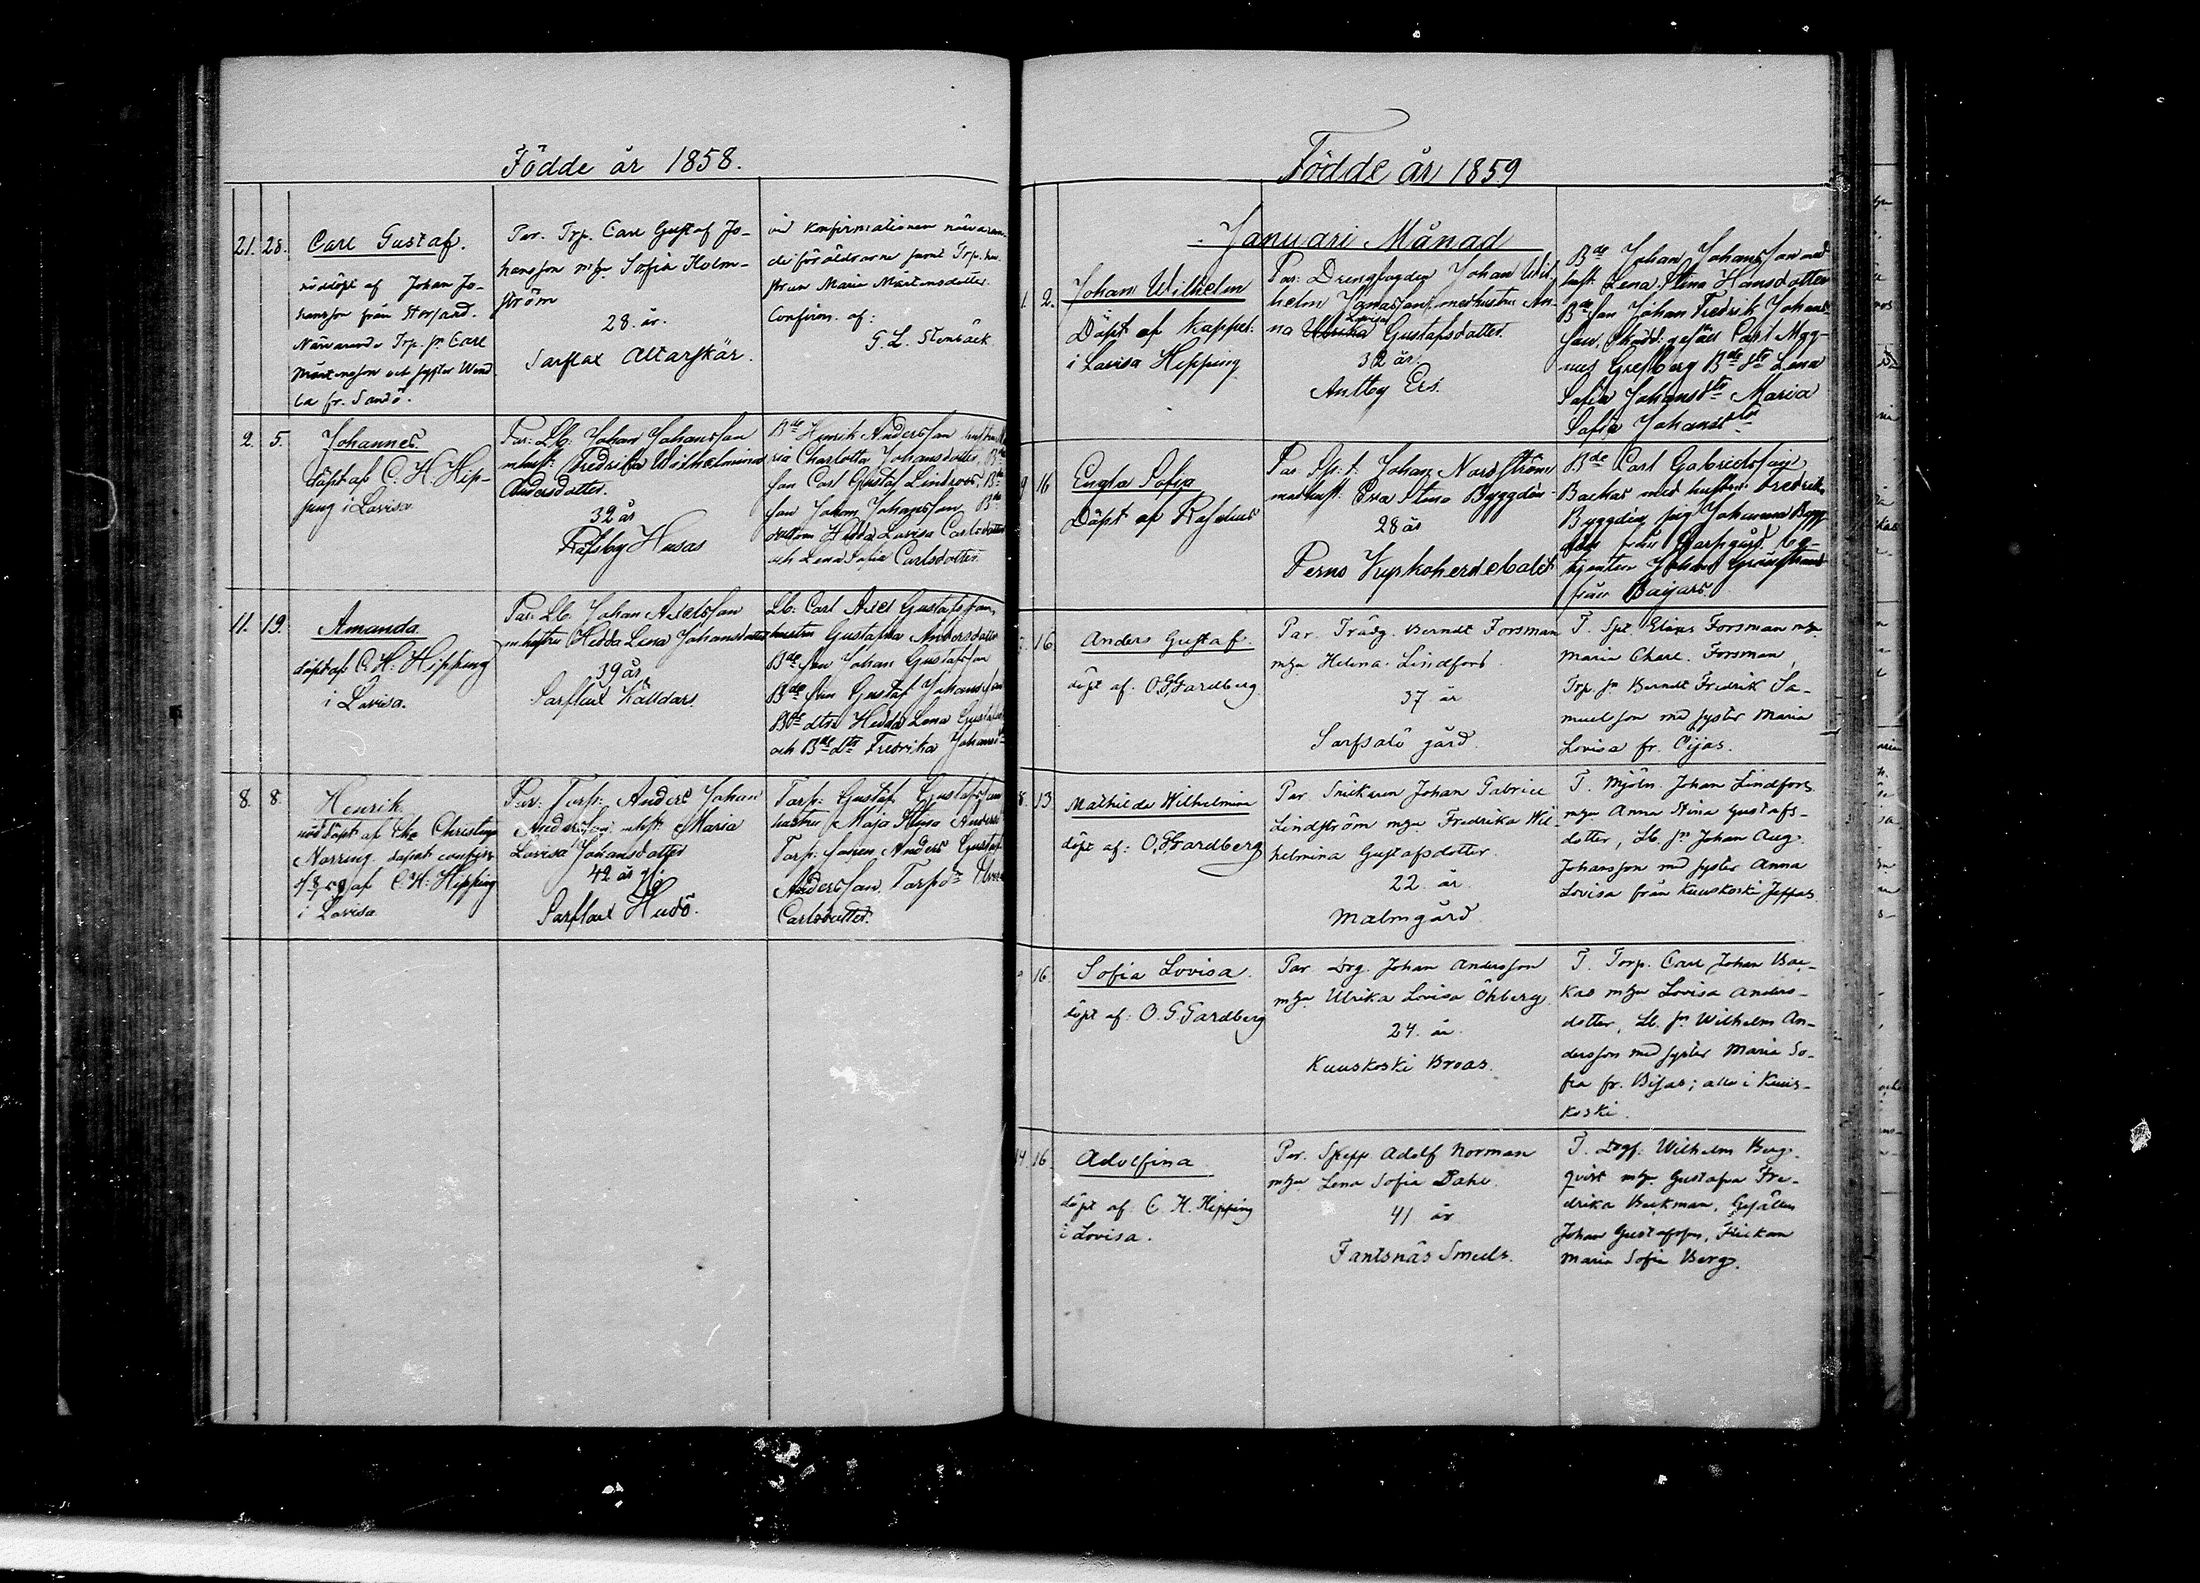 Födde år 1858.
21. 28. Carl Gustaf.
nöddöpt af Johan Jo-
hansson från Storsard.
Närvarande Trp. sn Carl
Mårtensson och syster Wend
la fr. Sandö.
Par. Trp. Carl Gustaf Jo-
hansson m hu Sofia Holm-
ström
28. år.
Sarflax Altarskär.
vid konfirmationen närvaran-
de föräldrarne samt Trp. hu-
strun Maria Mårtensdotter.
Confirm. af:
G. L. Stenbäck
2. 5. Johannes.
döpt af C. H. Hip-
ping i Lovisa
Par: Lb: Johan Johansson
m hust: Fredrika Wilhelmina
Andersdotter.
32 år
Räfsby Husas
Bde Henrik Andersson hustru Ma
ria Charlotta Johansdotter, Bde
son Carl Gustaf Lindroos, Bde
son Johan Johansson Bde
dottern Hedda Lovisa Carlsdotter
och Lena Sofia Carlsdotter.
11. 19. Amanda.
döpt af C. H. Hipping
i Lovisa.
Par: Lb. Johan Axelsson
m hustru Hedda Lena Johansdotter
39 år
Sarflax Källdars.
Lb: Carl Axel Gustafsson,
hustru Gustafva Andersdotter
Bde son Johan Gustafsson
Bde son Gustaf Johansson
Bde dtr Hedda Lena Gustafs
och Bde dtr Fredrika Johans
8. 8. Henrik
nöddöpt af Christina
Norring. dopet confirm
af C. H. Hipping
i Lovisa
Par: Torp: Anders Johan
Andersson m hst: Maria
Lovisa Johansdotter
42 år
Sarflax Hudö.
Torp: Gustaf Gustafsson
hustru Maja Stina Anders
Torp: sonen Anders Gustaf
Andersson, Torp
Carlsdotter.
Födde år 1859
Januari Månad
1. 2. Johan Wilhelm
Döpt af kappel:
i Lovisa Hipping
Par: Drengfogden Johan Wil-
helm Jonasson, med hustru An-
na Ulrika Lovisa Gustafsdotter.
32 år
Antby Ers.
Bde Johan Johansson med
hust. Lena Stina Hansdotter
Bde son Johan Fredrik Johans-
son, Skrädd: gesäll Carl Mag-
nus Grefberg Bde dtr Lena
Sofia Johansdtr Maria
Sofia Johansdtr
9 16 Engla Sofia
Döpt af
Par. Sp: t: Johan Nordström
med hust: Eva Stina Byggdén
28 år
Perno Kyrkoherdebolet
Bde Carl Gabrielsson
Backas med hustru Fredrika
Byggdén pig Johanna Bygg
dén från Garpgård. be-
tjenten Johan Grönstrand
från Baijars.
16. Anders Gustaf.
döpt af. O. G. Gardberg.
Par. Trädg. Berndt Forsman
m hu Helena Lindfors.
37 år
Sarfsalö gård.
T. Spt. Elias Forsman m hu
Maria Charl. Forsman,
Trp. sn Berndt Fredrik Sa-
muelson med syster Maria
Lovisa fr. Öijas.
8. 13. Mathilda Wilhelmina
döpt af: O. G. Gardberg
Par Snickaren Johan Gabriel
Lindström m hu Fredrika Wil-
helmina Gustafsdotter.
22. år.
Malmgård.
T. Mjöln. Johan Lindfors
m hu Anna Stina Gustafs-
dotter, Lb. sn Johan Aug.
Johansson med syster Anna
Lovisa från Kuuskoski Jeppas
16. Sofia Lovisa.
döpt af: O. G. Gardberg
Par. Drg. Johan Andersson
m hu Ulrika Lovisa Öhberg
24. år.
Kuuskoski Broas.
T. Torp. Carl Johan Bac-
kas m hu Lovisa Anders-
dotter, Lb. sn Wilhelm An-
dersson med syster Maria So-
fia fr. Bijas; alla i Kuus-
koski.
14. 16. Adolfina
döpt af: C. H. Hipping
i Lovisa.
Par. Skepp Adolf Norman
m hu Lena Sofia Dahl.
41 år
Fantsnäs Smeds.
T. Drgf: Wilhelm Berg-
qvist m hu Gustafva Fre-
drika Beckman, Gesällen
Johan Gustafsson, Flickan
Maria Sofia Berg.